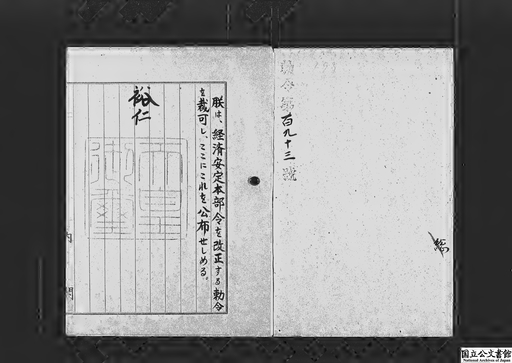 勅令第百九十三號
朕は、経済安定本部令を改正する勅令
を裁可し、ここにこれを公布せしめる。
裕仁
天皇
御璽
内閣
国立公文書館
National Archives of Japan